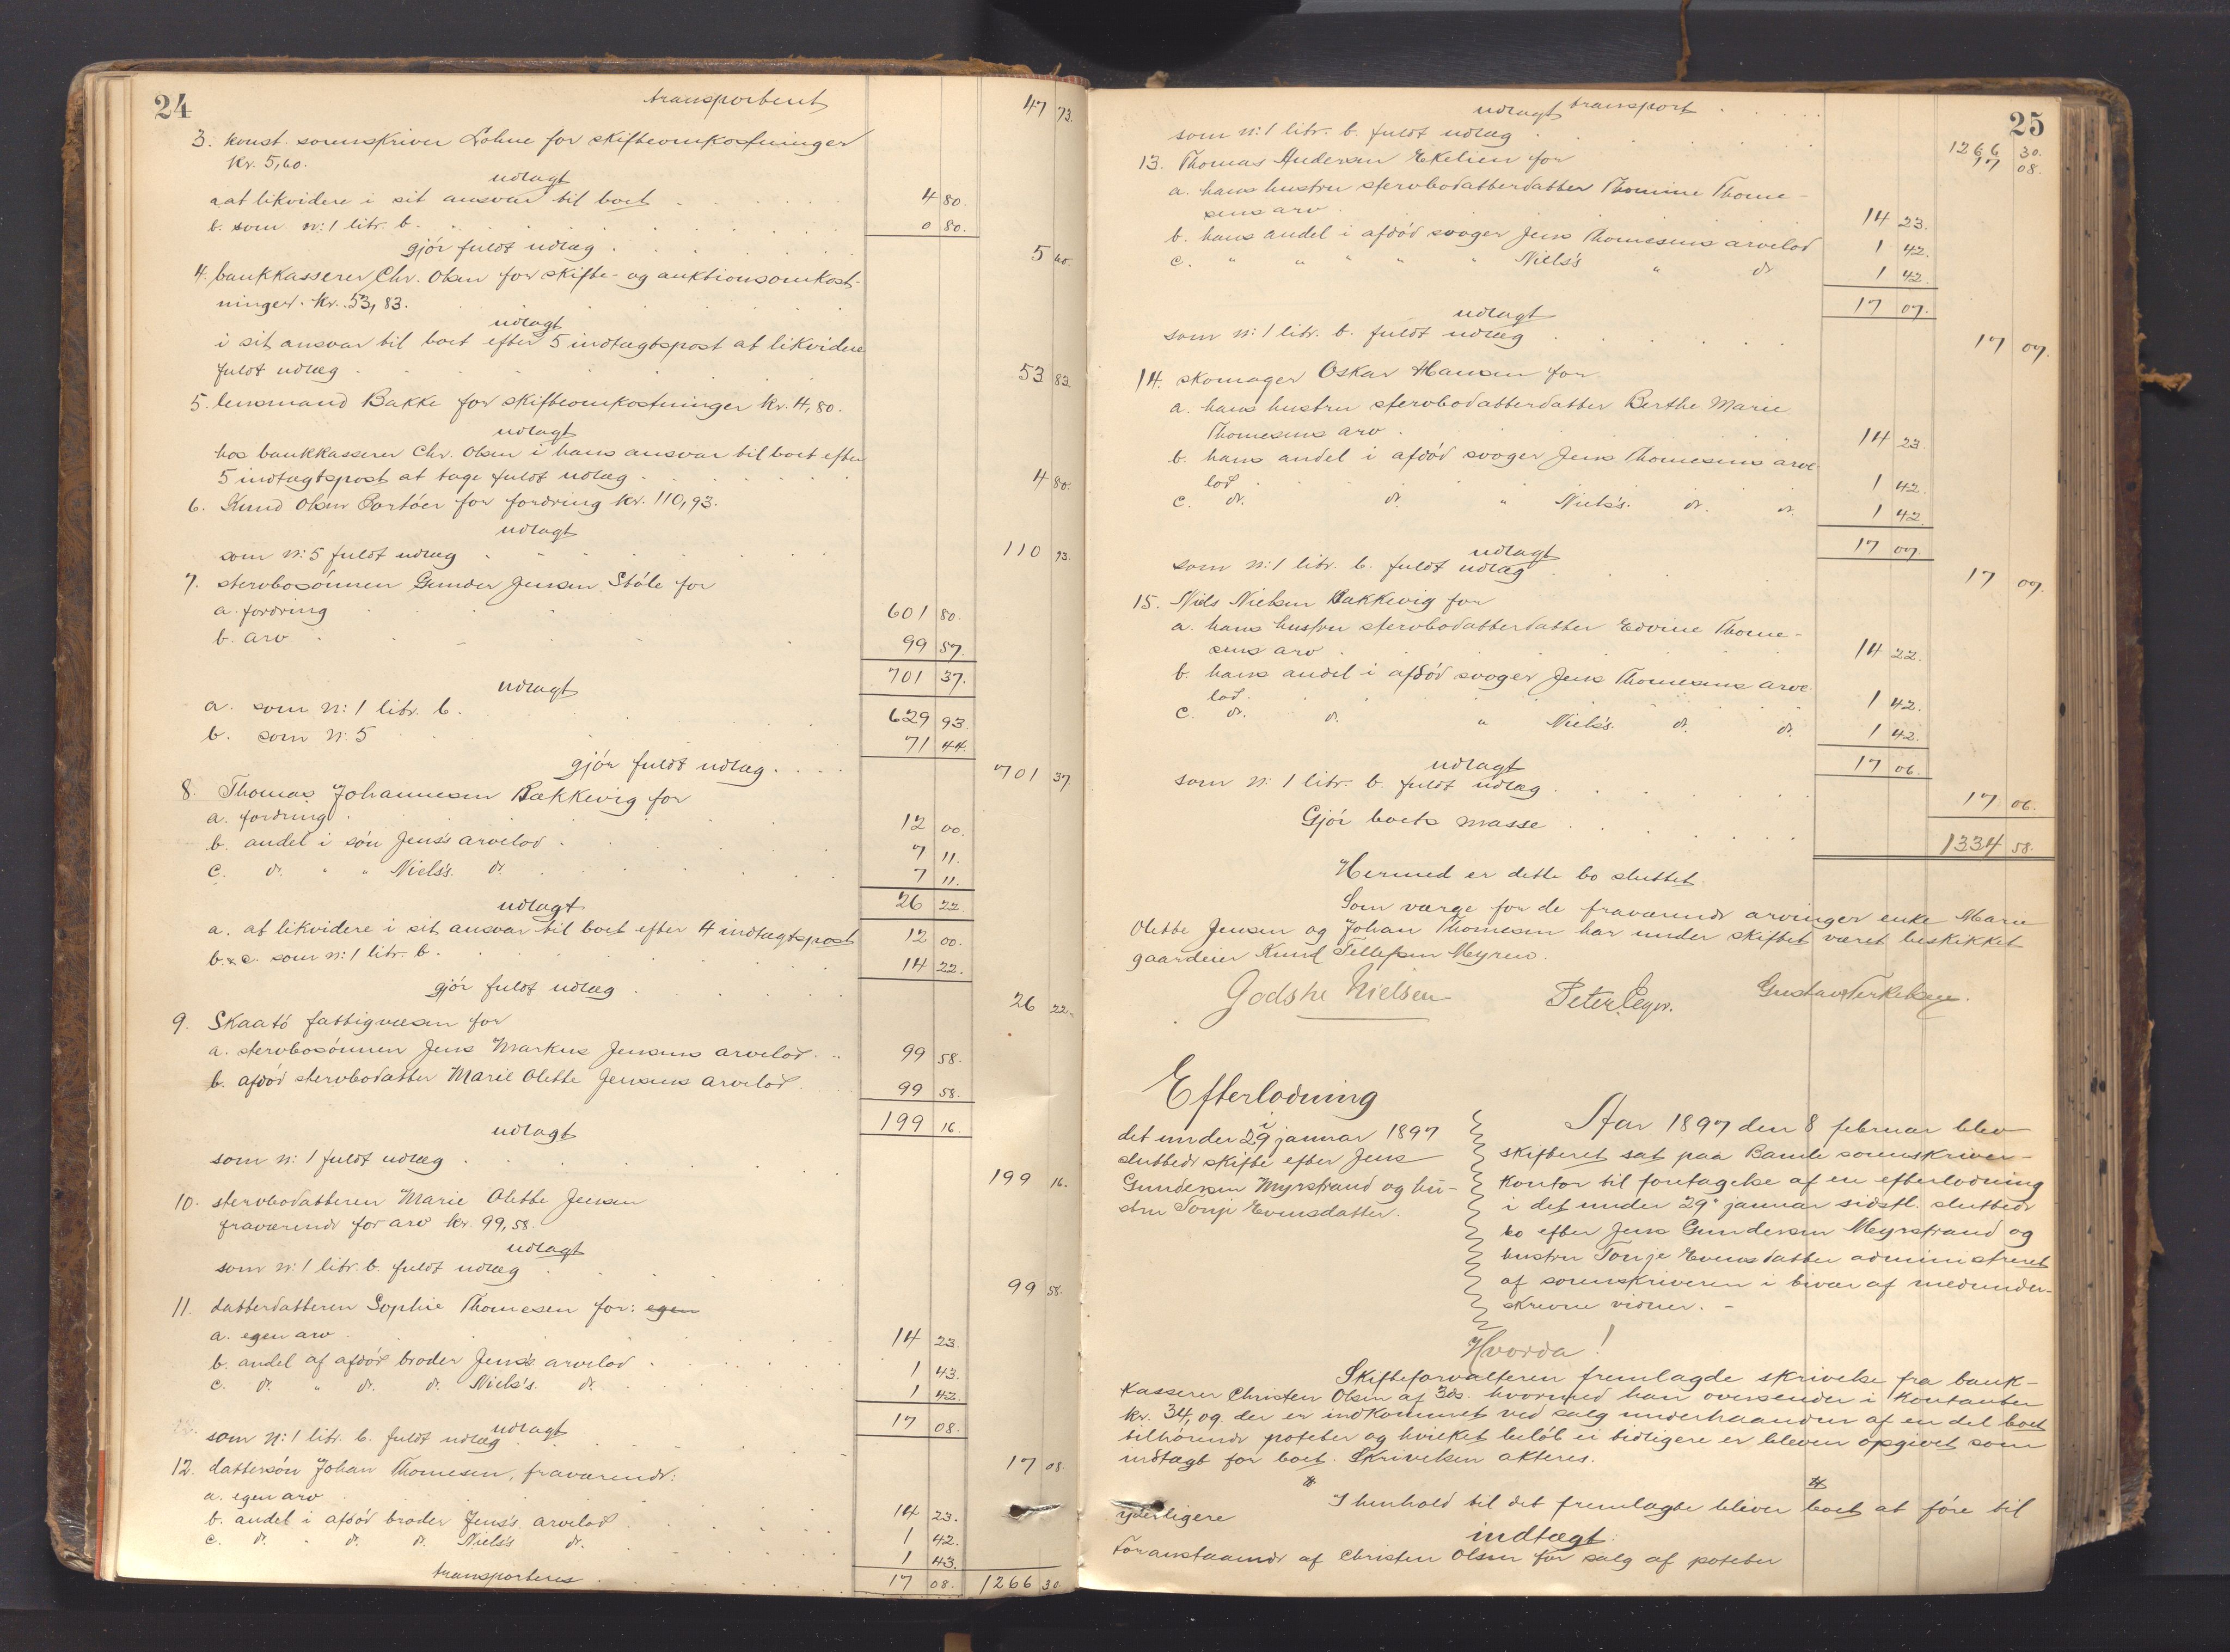 24
transportert 47 73.
3. konst. sorenskriver Lohne for skifteomkostninger
kr. 5,60.
udlagt
a. at likvidere i sit ansvar til boet 4 80.
b. som n: 1 litr. b. 0 80.
gjør fuldt udlæg 5 60.
4. bankkasserer Chr. Olsen for skifte- og auktionsomkost-
ninger. kr. 53,83.
udlagt
i sit ansvar til boet efter 5 indtægtspost at likvidere
fuldt udlæg 53 83.
5. lensmand Bakke for skifteomkostninger kr. 4,80.
udlagt
hos bankkasserer Chr. Olsen i hans ansvar til boet efter
5 indtægtspost at tage fuldt udlæg 4 80.
6. Knud Olsen Portøer for fordring kr. 110,93.
udlagt
som n: 5 fuldt udlæg 110 93.
7. stervbosønnen Gunder Jensen Støle for
a. fordring 601 80.
b. arv 99 57.
701 37.
udlagt
a. som n: 1 litr. b. 629 93.
b. som n. 5 71 44.
gjør fuldt udlæg 701 37.
8. Thomas Johannesen Bakkevig for
a. fordring 12 00.
b. andel i søn Jens's arvelod 7 11.
c. do. " " Niels's. do. 7 11.
26 22.
udlagt
a. at likvidere i sit ansvar til boet efter 4 indtægtspost 12 00.
b. & c. som n: 1 litr. b. 14 22.
gjør fuldt udlæg 26 22.
9. Skaatø fattigvæsen for
a. stervbosønnen Jens Markus Jensens arvelod 99 58.
b. afdød stervbodatter Marie Olette Jensens arvelod 99 58.
199 16.
udlagt
som n: 1 fuldt udlæg 199 16.
10. stervbodatteren Marie Olette Jensen
fraværende for arv kr. 99,58.
udlagt
som n: 1 litr. b. fuldt udlæg 99 58.
11. datterdatteren Sophie Thomesen for: egen
a. egen arv 14 23.
b. andel af afdød broder Jens's arvelod 1 43.
c. do. " do. do. Niels's. do. 1 42.
17 08.
udlagt
som n: 1 litr. b. fuldt udlæg 17 08.
12. dattersøn Johan Thomesen, fraværende:
a. egen arv 14 23.
b. andel i afdød broder Jens's. arvelod 1 42.
c. do. " do. do. Niels's do. 1 43.
transporteres 17 08. 1266 30.
25
transport 1266 30.
udlagt
som n: 1 litr. b. fuldt udlæg 17 08.
13. Thomas Andersen Ekelien for
a. hans hustru stervbodatterdatter Thomine Thome-
sens arv 14 23.
b. hans andel i afdød svoger Jens Thomesens arvelod 1 42.
c. " " " " " Niels's " do 1 42.
17 07.
udlagt
som n: 1 litr. b. fuldt udlæg 17 07.
14. skomager Oskar Hansen for
a. hans hustru stervbodatterdatter Berthe Marie
Thomesens arv 14 23
b. hans andel i afdød svoger Jens Thomesens arve-
lod 1 42.
c. do. do. " Niels's. do. do. 1 42.
17 07.
udlagt
som n: 1 litr. b. fuldt udlæg 17 07.
15. Niels Nielsen Bakkevig for
a. hans hustru stervbodatterdatter Edvine Thome-
sens arv 14 22.
b. hans andel i afdød svoger Jens Thomesens arve-
lod 1 42.
c. do. do. " Niels's. do. do. 1 42.
17 06.
udlagt
som n: 1 litr. b. fuldt udlæg 17 06.
Gjør boets masse 1334 58.
Hermed er dette bo sluttet.
Som værge for de fraværende arvinger enke Marie
Olette Jensen og Johan Thomesen har under skiftet været beskikket
gaardeier Knud Tellefsen Myren.
Godske Nielsen Peter Gustav Terkelsen.
Efterlodning
i
det under 29 januar 1897
sluttede skifte efter Jens
Gundersen Myrstrand og hu-
stru Tonje Evensdatter.
Aar 1897 den 8 februar blev
skifteret sat paa Bamle sorenskriver-
kontor til foretagelse af en efterlodning
i det under 29. januar sidstl. sluttede
bo efter Jens Gundersen Myrstrand og
hustru Tonje Evensdatter administreret
af sorenskriveren i bivær af medunder-
skrevne vidner. -
Hvorda!
Skifteforvalteren fremlagde skrivelse fra bank-
kasserer Christen Olsen af 3ds. hvormed han oversender i kontanter
kr. 34, og der er indkommet ved salg underhaanden af en del boet
tilhørende poteter og hvilket beløb ei tidligere er bleven opgivet som
indtægt for boet. Skrivelsen akteres.
I henhold til det fremlagte bliver boet at føre til
yderligere
indtægt:
Foranstaaende af Christen Olsen for salg af poteter